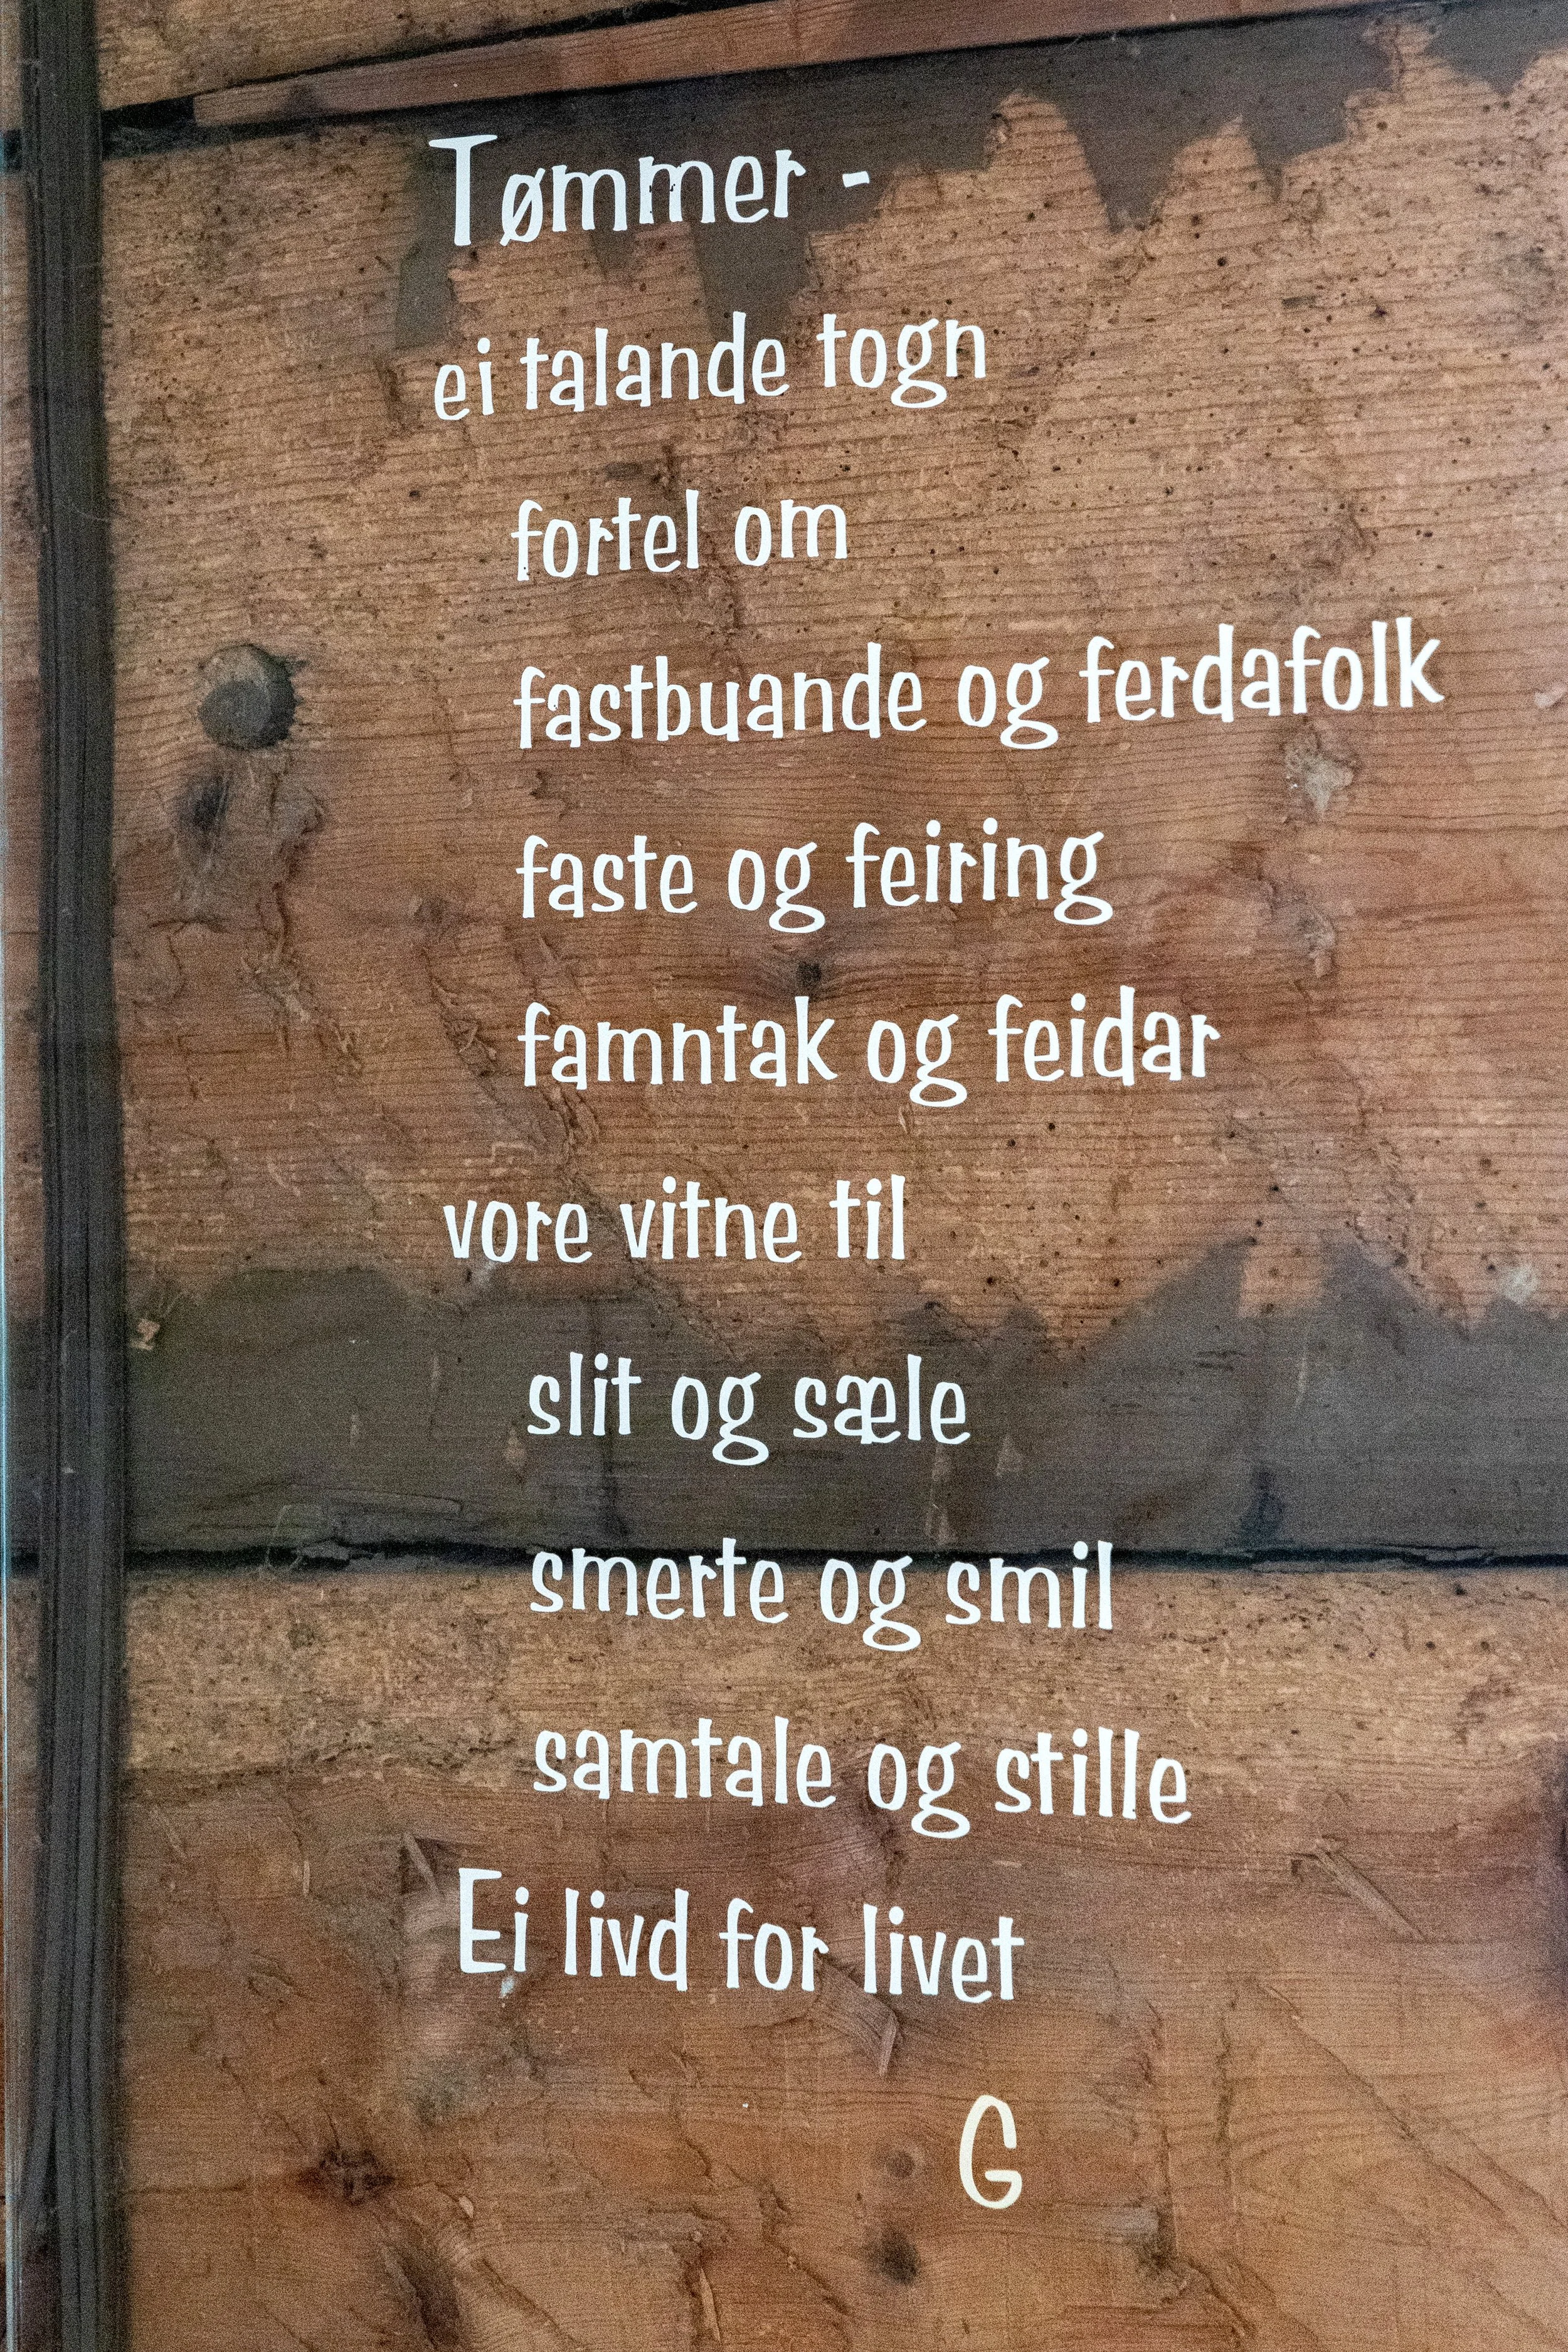 Tømmer -
ei talande togn
fortel om
fastbuande og ferdafolk
faste og feiring
famntak og feidar
vore vitne til
slit og sæle
smerte og smil
samtale og stille
Ei livd for livet
G